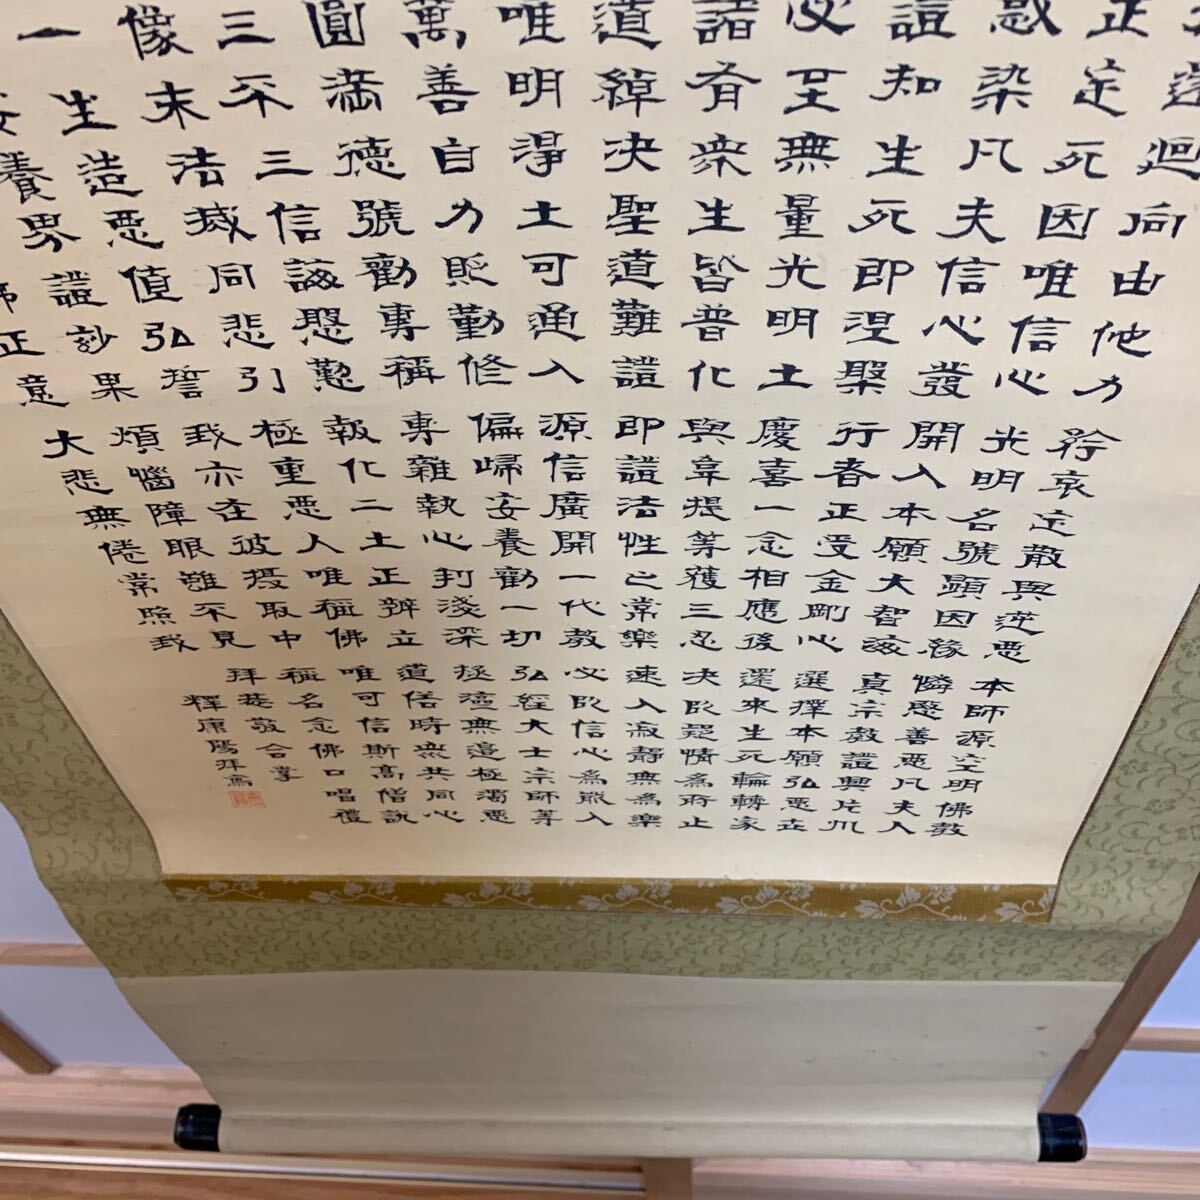 還廻向由他力
正定之因唯信心
惑染凡夫信心發
證知生死即涅槃
必至無量光明土
諸有衆生皆普化
道綽決聖道難證
唯明淨土可通入
萬善自力貶勤修
圓滿德號勸專稱
三不三信誨慇懃
像末法滅同悲引
一生造惡値弘誓
安養界證妙果
佛正意
矜哀定散與逆惡
光明名號顯因縁
開入本願大智海
行者正受金剛心
慶喜一念相應後
與韋提等獲三忍
即證法性之常樂
源信廣開一代教
偏歸安養勸一切
專雜執心判淺深
報化二土正辨立
極重惡人唯稱佛
我亦在彼攝取中
煩惱障眼雖不見
大悲無倦常照我
本師源空明佛教
憐愍善惡凡夫人
真宗教證興片州
選擇本願弘惡世
還來生死輪轉家
決以疑情爲所止
速入寂靜無爲樂
必以信心爲能入
弘經大士宗師等
拯濟無邊極濁惡
道俗時衆共同心
唯可信斯高僧説
稱名念佛口唱禮
拜恭敬合掌
釋康陽拜寫